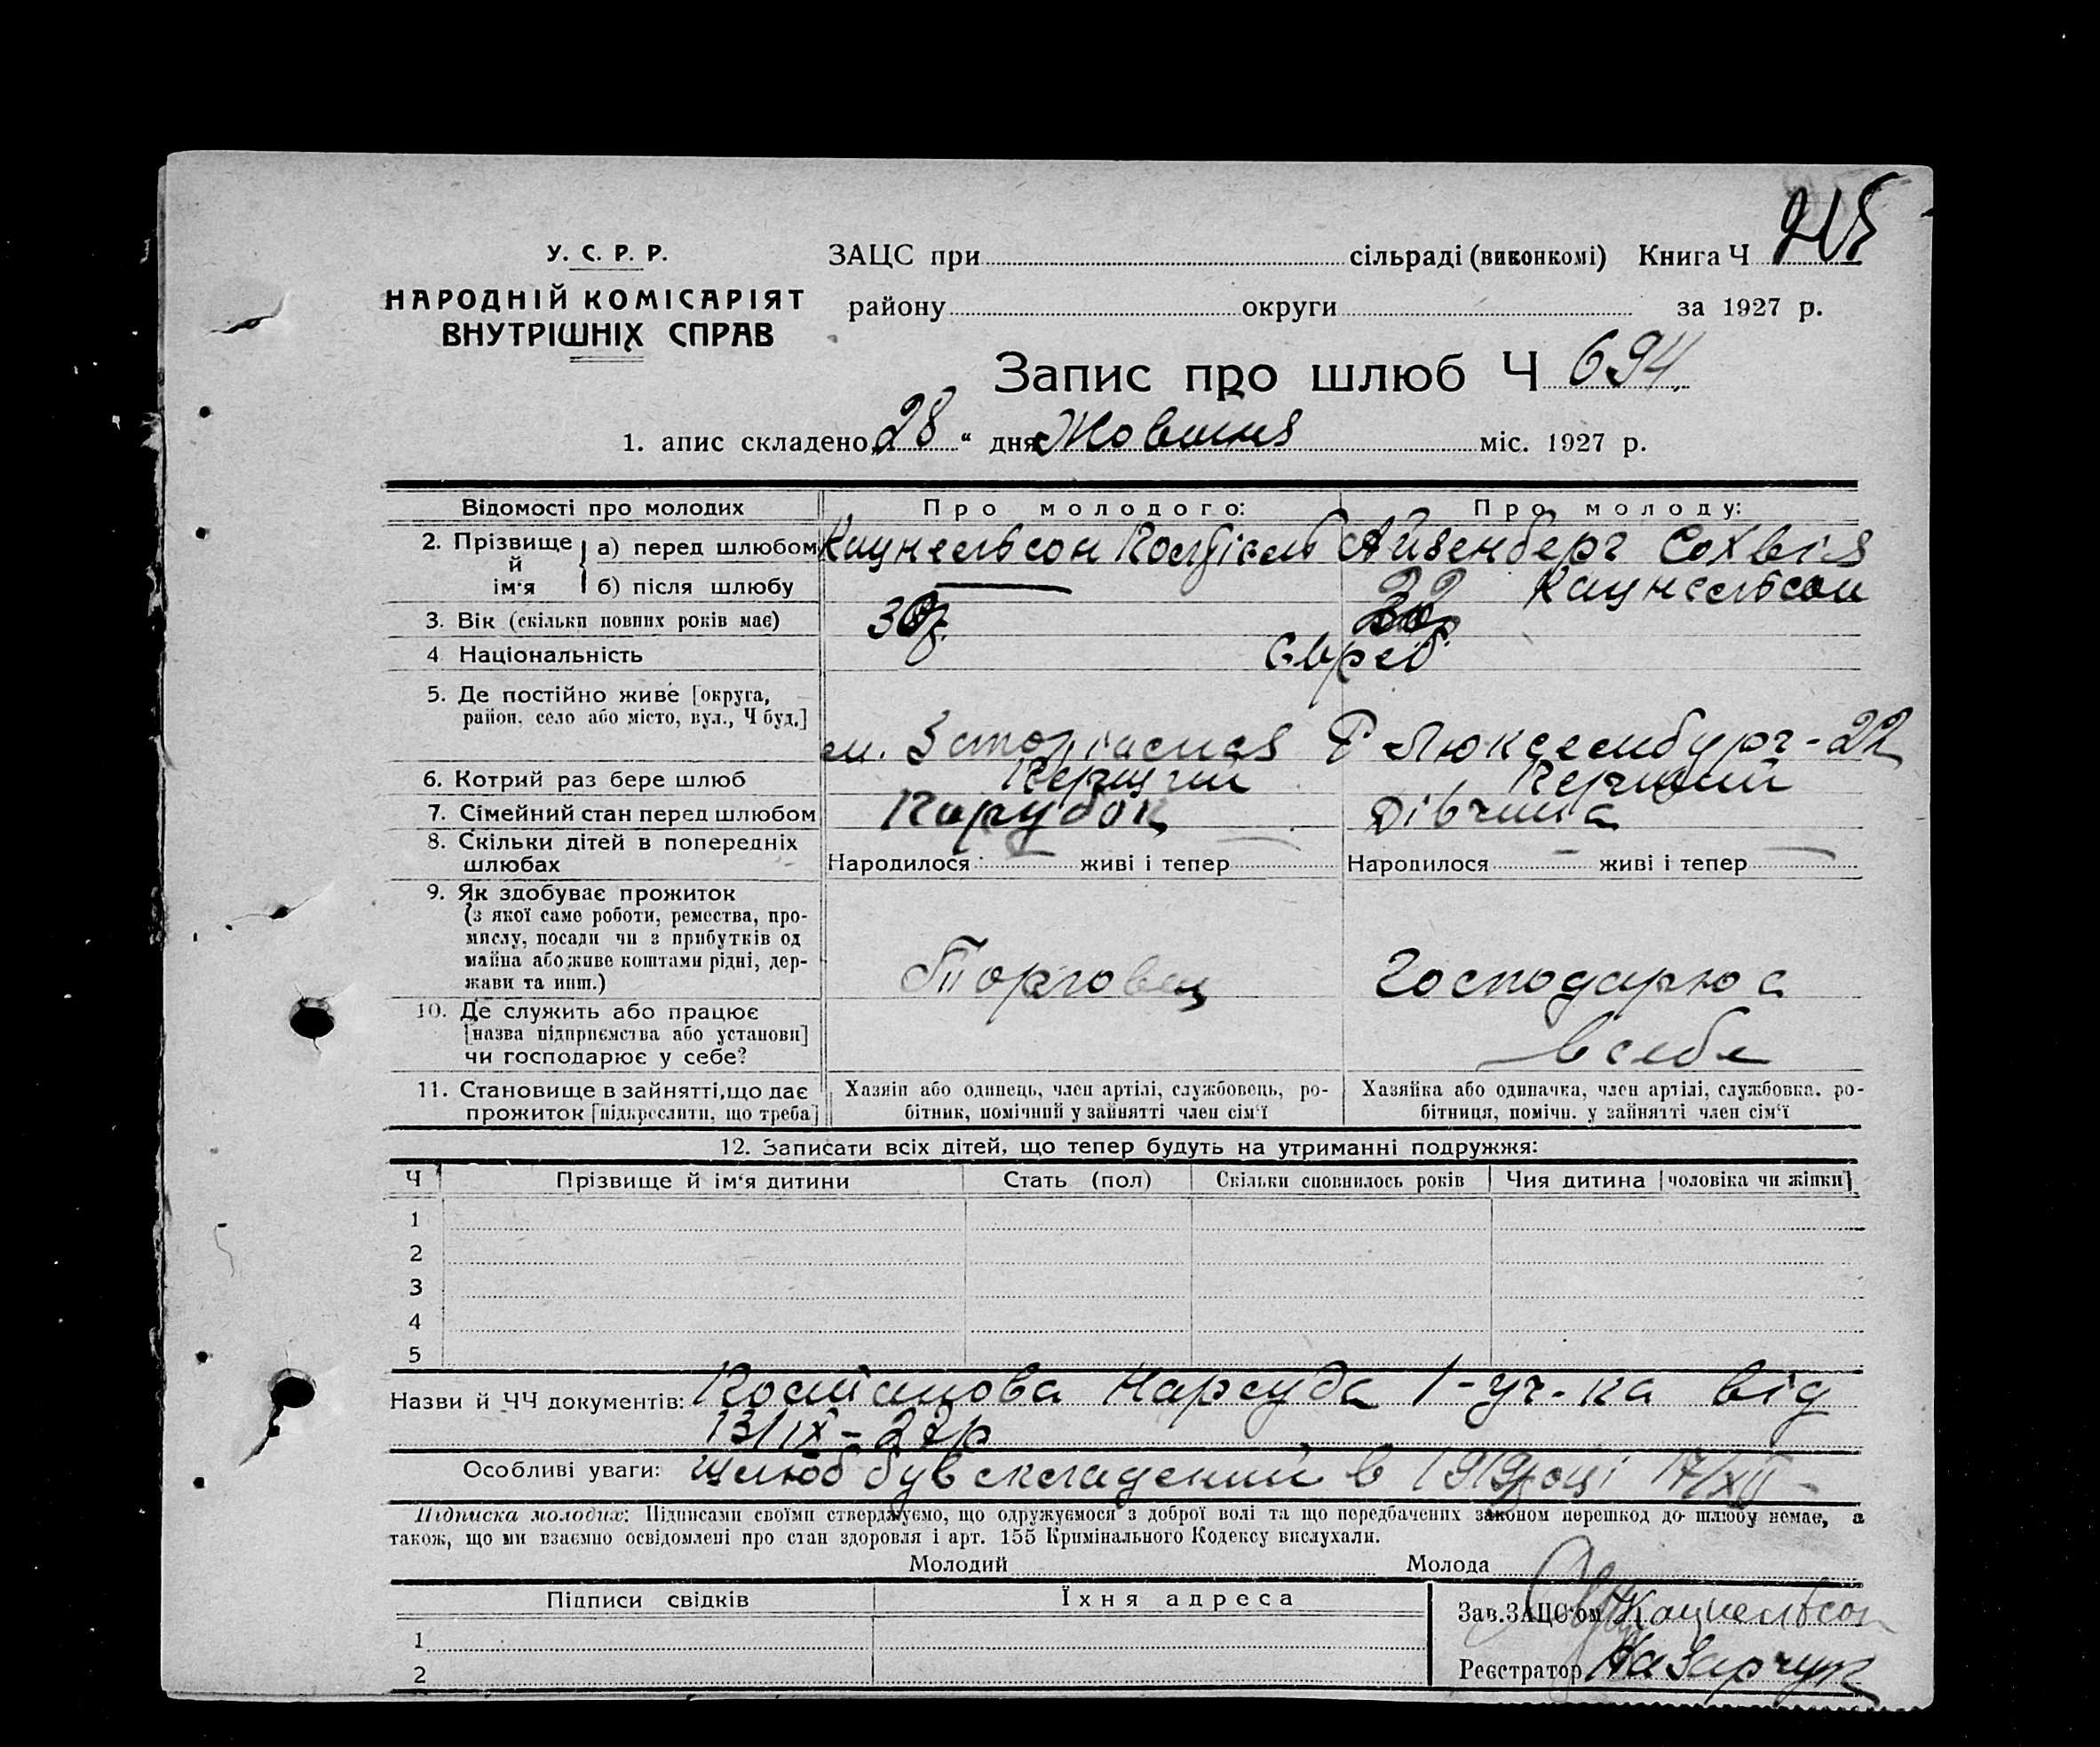 У. С. Р. Р.
НАРОДНІЙ КОМІСАРІЯТ
ВНУТРІШНІХ СПРАВ
ЗАЦС при сільраді (виконкомі) Книга Ч
району округи за 1927 р.
Запис про шлюб Ч 694
1. апис складено 28 " дня Жовтня міс. 1927 р.
Відомості про молодих Про молодого: Про молоду:
2. Прізвище й ім'я а) перед шлюбом Кацнельсон Айзенберг Сохвія
б) після шлюбу Кацнельсон
3. Вік (скільки повних років має)
4 Національність Євреї
5. Де постійно живе [округа,
район, село або місто, вул., Ч буд.]
м. Р Люксембург-22
6. Котрий раз бере шлюб Перший Перший
7. Сімейний стан перед шлюбом Парубок Дівчина
8. Скільки дітей в попередніх
шлюбах Народилося — живі і тепер — Народилося — живі і тепер —
9. Як здобуває прожиток
(з якої саме роботи, ремества, про-
мислу, посади чи з прибутків од
майна або живе коштами рідні, дер-
жави та инш.)
Торговец Господарює
10. Де служить або працює
[назва підприємства або установи]
чи господарює у себе?
в себе
11. Становище в зайнятті, що дає
прожиток [підкреслити, що треба]
Хазяін або одинець, член артілі, службовець, ро-
бітник, помічний у зайнятті член сім'ї
Хазяйка або одиначка, член артілі, службовка, ро-
бітниця, помічн. у зайнятті член сім'ї
12. Записати всіх дітей, що тепер будуть на утриманні подружжя:
Ч Прізвище й ім'я дитини Стать (пол) Скільки сповнилось років Чия дитина [чоловіка чи жінки]
1
2
3
4
5
Назви й ЧЧ документів: Постанова Нарсуда 1-уч-ка від
13/IX-27р
Особливі уваги: Шлюб був складений в 1919 році 17/XII -
Підписка молодих: Підписами своїми стверджуємо, що одружуємося з доброї волі та що передбачених законом перешкод до шлюбу немає, а
також, що ми взаємно освідомлені про стан здоровля і арт. 155 Кримінального Кодексу вислухали.
Молодий Молода
Підписи свідків Їхня адреса
1
2
Зав. ЗАЦС'ом Кацнельсон
Реєстратор Назарчук